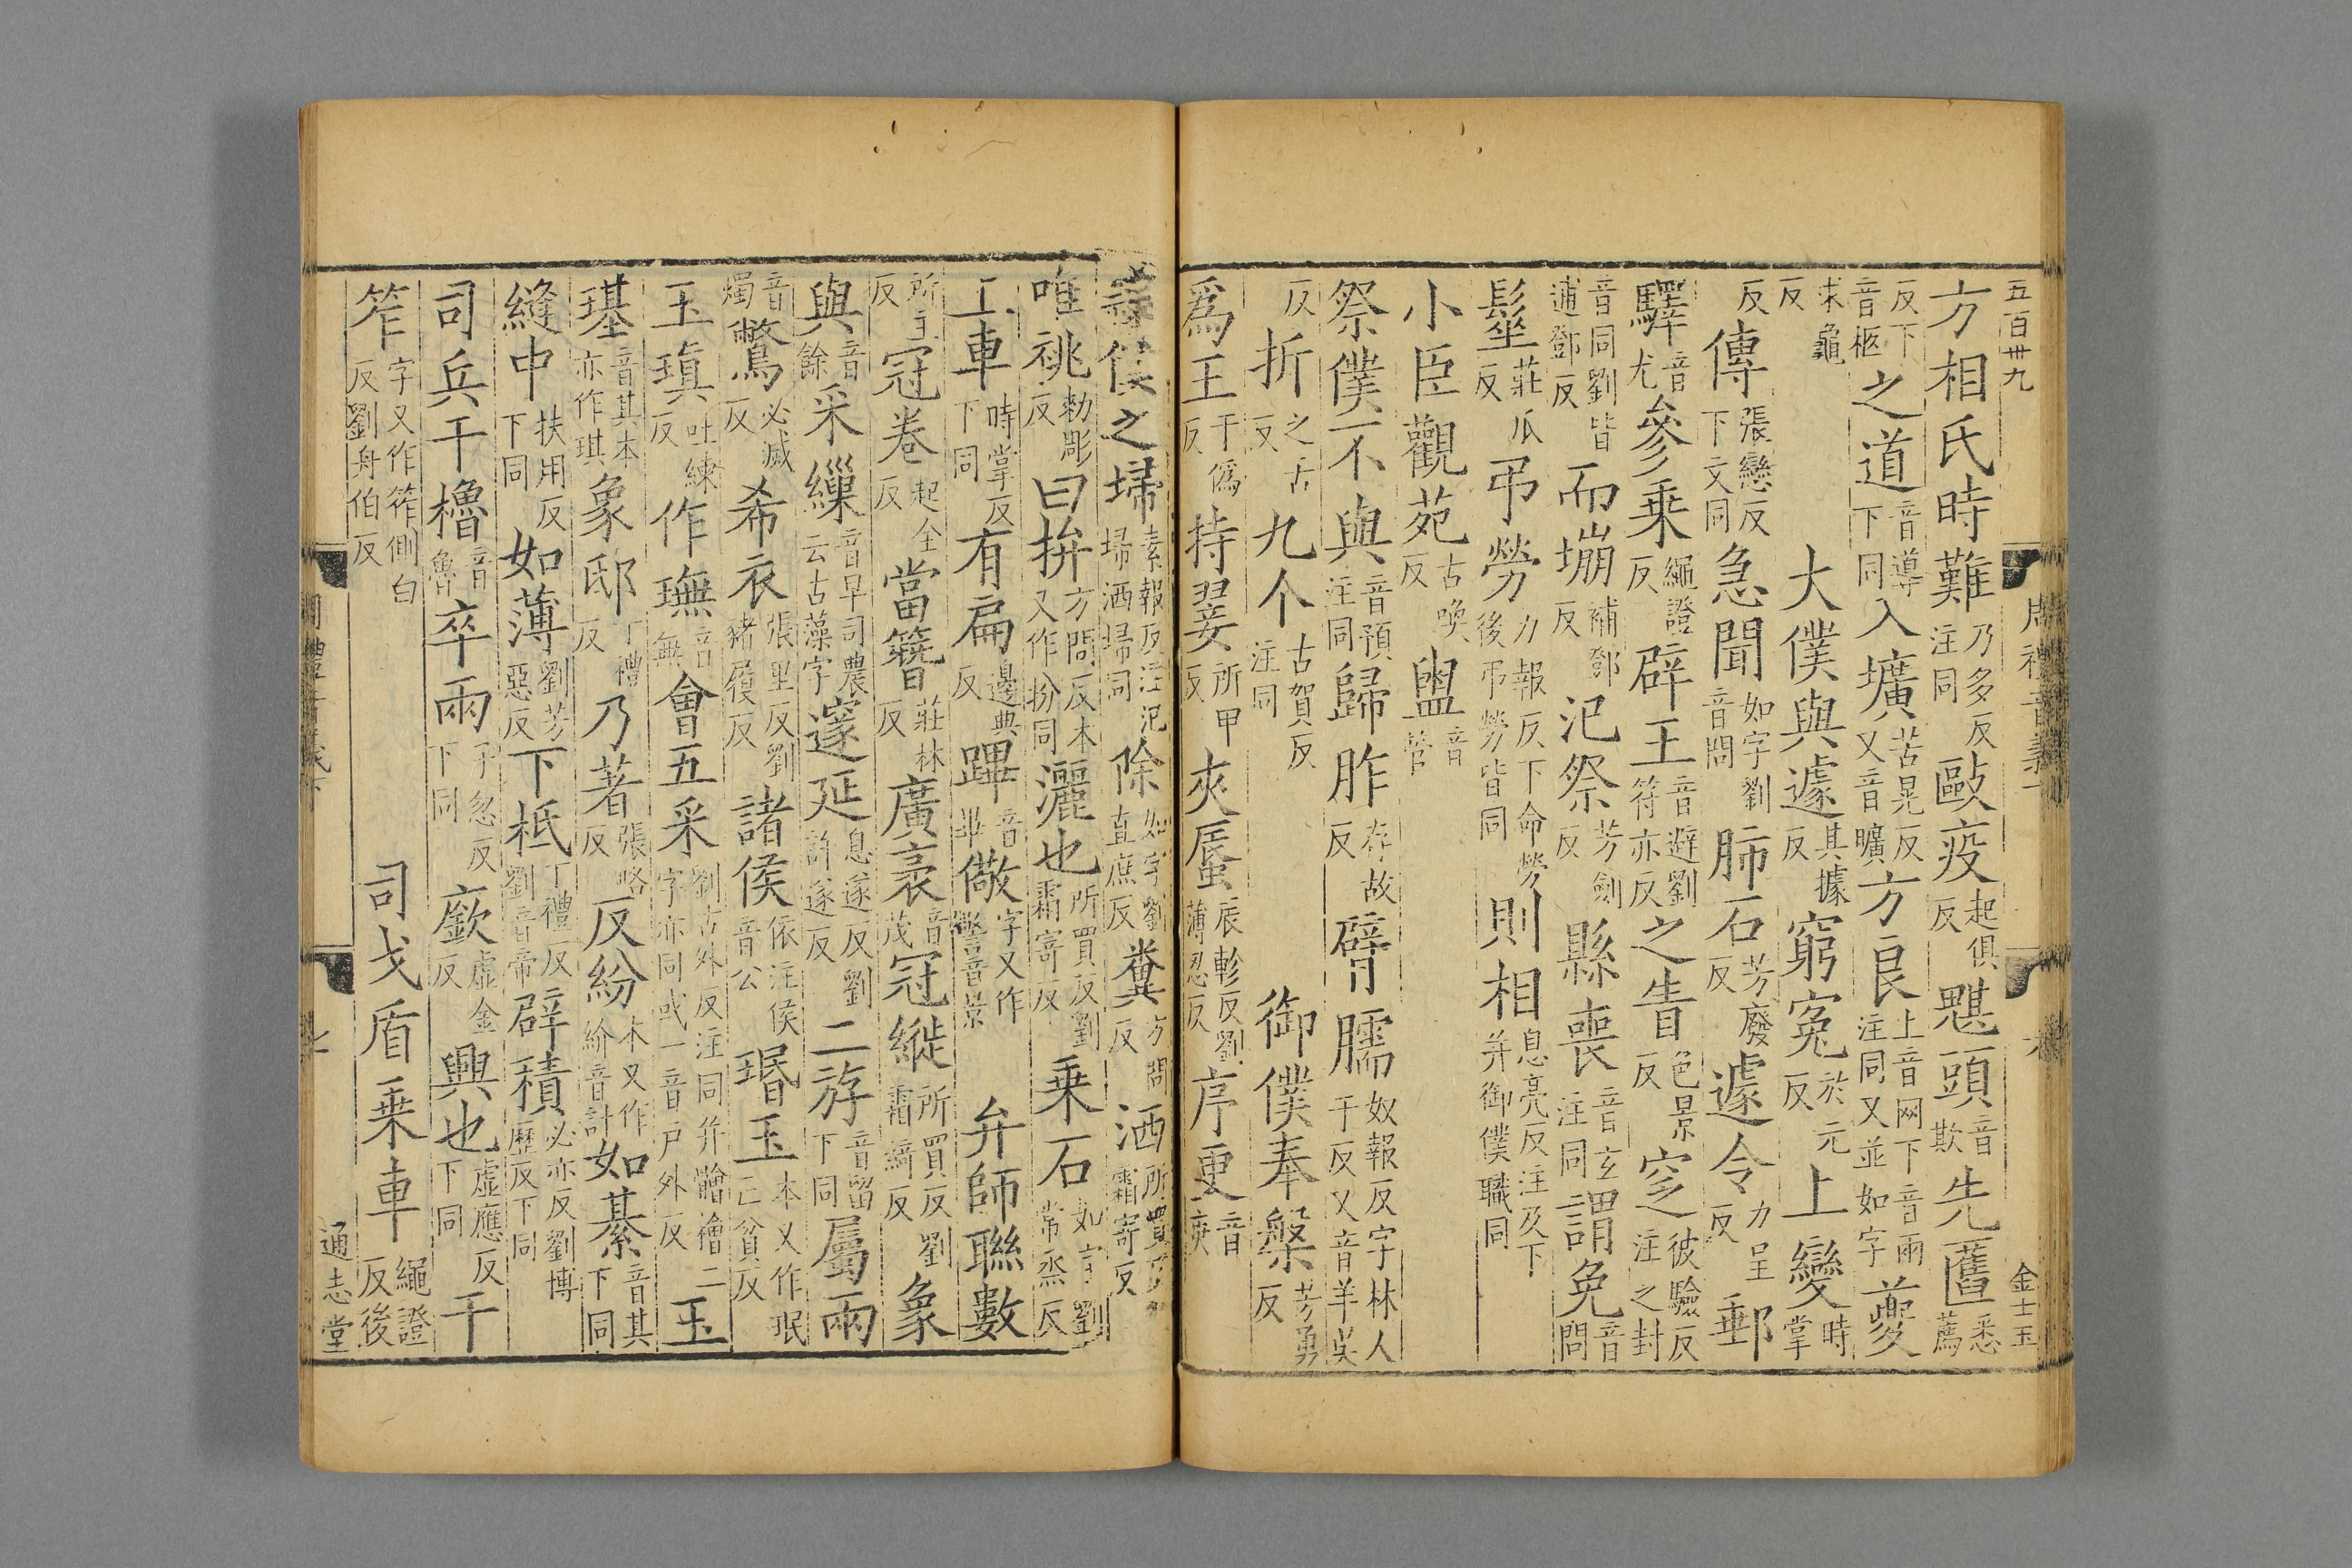 五百卅九　周禮音義下　六　金士玉
方相氏時難乃多反注同毆疫起俱反魌頭音欺先匶悉薦
反下音柩之道音導下同入壙苦晃反又音曠方良上音网下音兩注同又並如字夔
求龜反　大僕與遽其據反窮寃於元反上變時掌
反傳張戀反下文同急聞如字劉音問肺石芳廢反遽令力呈反郵
驛音尤參乘繩證反辟王音避劉符亦反之眚色景反窆彼驗反注之封
音同劉皆逋鄧反而堋補鄧反氾祭芳劍反縣喪音玄注同謂免音問
髽莊瓜反弔勞力報反下命勞後弔勞皆同則相息亮反注及下并御僕職同
小臣觀苑古喚反盥音管
祭僕不與音預注同歸胙存故反臂臑奴報反字林人于反又音羊吳
反折之舌反九个古賀反注同　御僕奉槃芳勇反
爲王于僞反持翣所甲反夾蜃辰軫反劉薄忍反序更音庚
隸僕之埽素報反注氾埽洒埽同除如字劉直庶反糞方問反洒所買反劉霜寄反
唯祧勑彫反曰拚方問反本又作扮同灑也所買反劉霜寄反乘石如字劉常烝反
上車時掌反下同有扁邊典反蹕音畢儆字又作警音景　弁師聯數
所主反冠卷起全反當簪莊林反廣袤音茂冠縰所買反劉霜綺反象
與音餘采繅音早司農云古藻字邃延息遂反劉許遂反二斿音留下同屬兩
音燭鷩必滅反希衣張里反劉豬履反諸侯依注侯音公瑉玉本又作珉亡貧反
玉瑱吐練反作璑音無會五采劉古外反注同并䯤檜二字亦同或一音戶外反玉
璂音其本亦作琪象邸丁禮反乃著張略反反紛本又作紒音計如綦音其下同
縫中扶用反下同如薄劉芳惡反下柢丁禮反劉音帝辟積必亦反劉博歷反下同
司兵干櫓音魯卒兩子忽反下同廞虛金反興也虛應反下同干
笮字又作筰側白反劉舟伯反　司戈盾乘車繩證反後
周禮音義下　七　通志堂